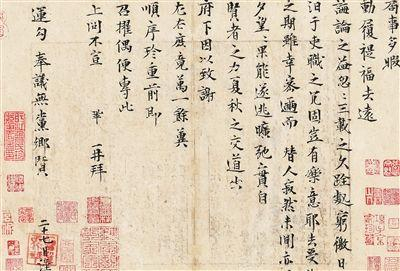 局事多暇
動履禔福去遠
誨論之益忽忽三載之久跧處窮徼日
汩于吏職之冗固豈有樂意耶去受
之期雖幸密邇而替人寂然未聞亦
夕望望果能遂逃曠弛實自
賢者之力夏秋之交道出
府下因以致謝
左右庶竟萬一餘冀
順序珍重前即
召擢偶便專此
上問不宣 鞏 再拜
運勾 奉議無黨鄉賢
二十七日謹